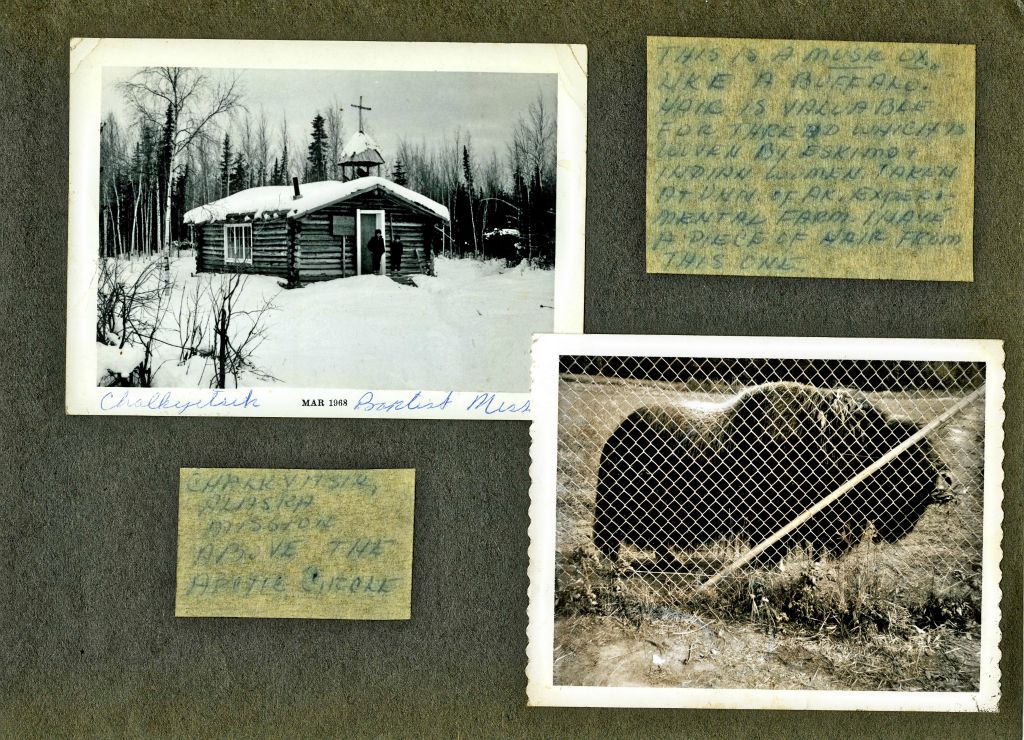 THIS IS A MUSK OX,
LIKE A BUFFALO.
HAIR IS VALUABLE
FOR THREAD WHICH IS
WOVEN BY ESKIMO &
INDIAN WOMEN. TAKEN
AT UNIV. OF AK EXPERI
MENTAL FARM I HAVE
A PIECE OF HAIR FROM
THIS ONE
Chalkyitsik MAR 1968 Baptist Miss
CHALKYITSIK,
ALASKA
MISSION
ABOVE THE
ARCTIC CIRCLE